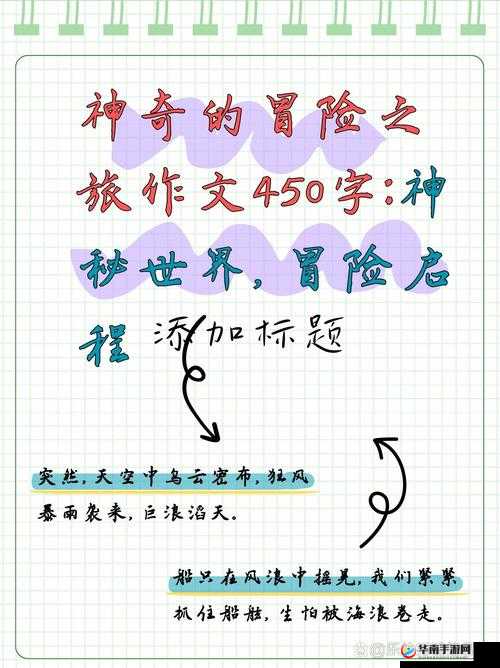 神奇的冒险之
旅作文450字:神
秘世界,冒险启
程 添加标题
突然,天空中乌云密布,狂风
暴雨袭来,巨浪滔天。
船只在风浪中摇晃,我们紧紧
抓住船舷,生怕被海浪卷走。
华南手游网